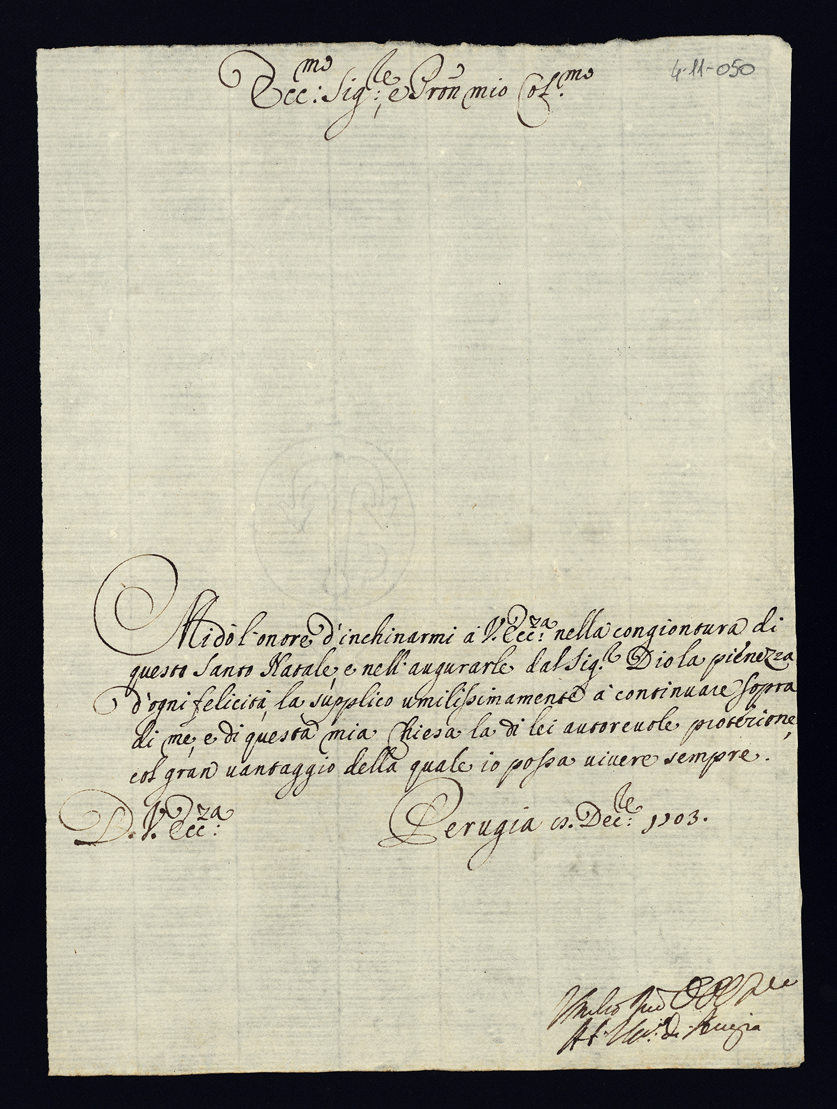 4-11-050
Ecc:mo Sig:re e Pron mio Col:mo
Mi dò l'onore d'inchinarmi à V. Ecc:za nella congiontura di
questo Santo Natale, e nell'augurarle dal Sig:re Dio la pienezza
d'ogni felicità, la supplico umilissimamente à continuare sopra
di me, e di questa mia Chiesa la di lei autorevole protezione,
col gran vantaggio della quale io possa vivere sempre.
D. V. Ecc:za
Perugia Dec:re 1703.
di Perugia